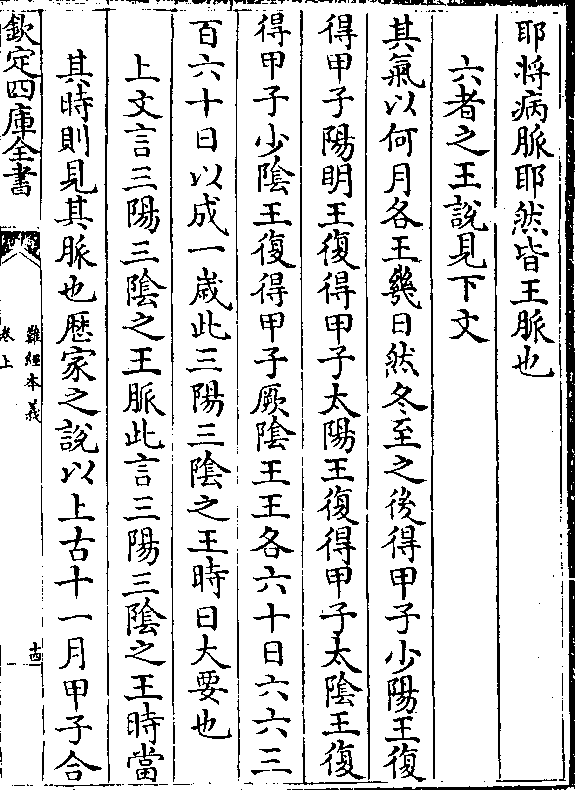 耶将病脈耶然皆王脈也
六者之王說見下文
其氣以何月各王幾日然冬至之後得甲子少陽王復
得甲子陽明王復得甲子太陽王復得甲子太陰王復
得甲子少陰王復得甲子厥陰王王各六十日六六三
百六十日以成一歲此三陽三陰之王時日大要也
上文言三陽三陰之王脈此言三陽三陰之王時當
其時則見其脈也歷家之說以上古十一月甲子合
欽定四庫全書
難經本義
卷上
十四